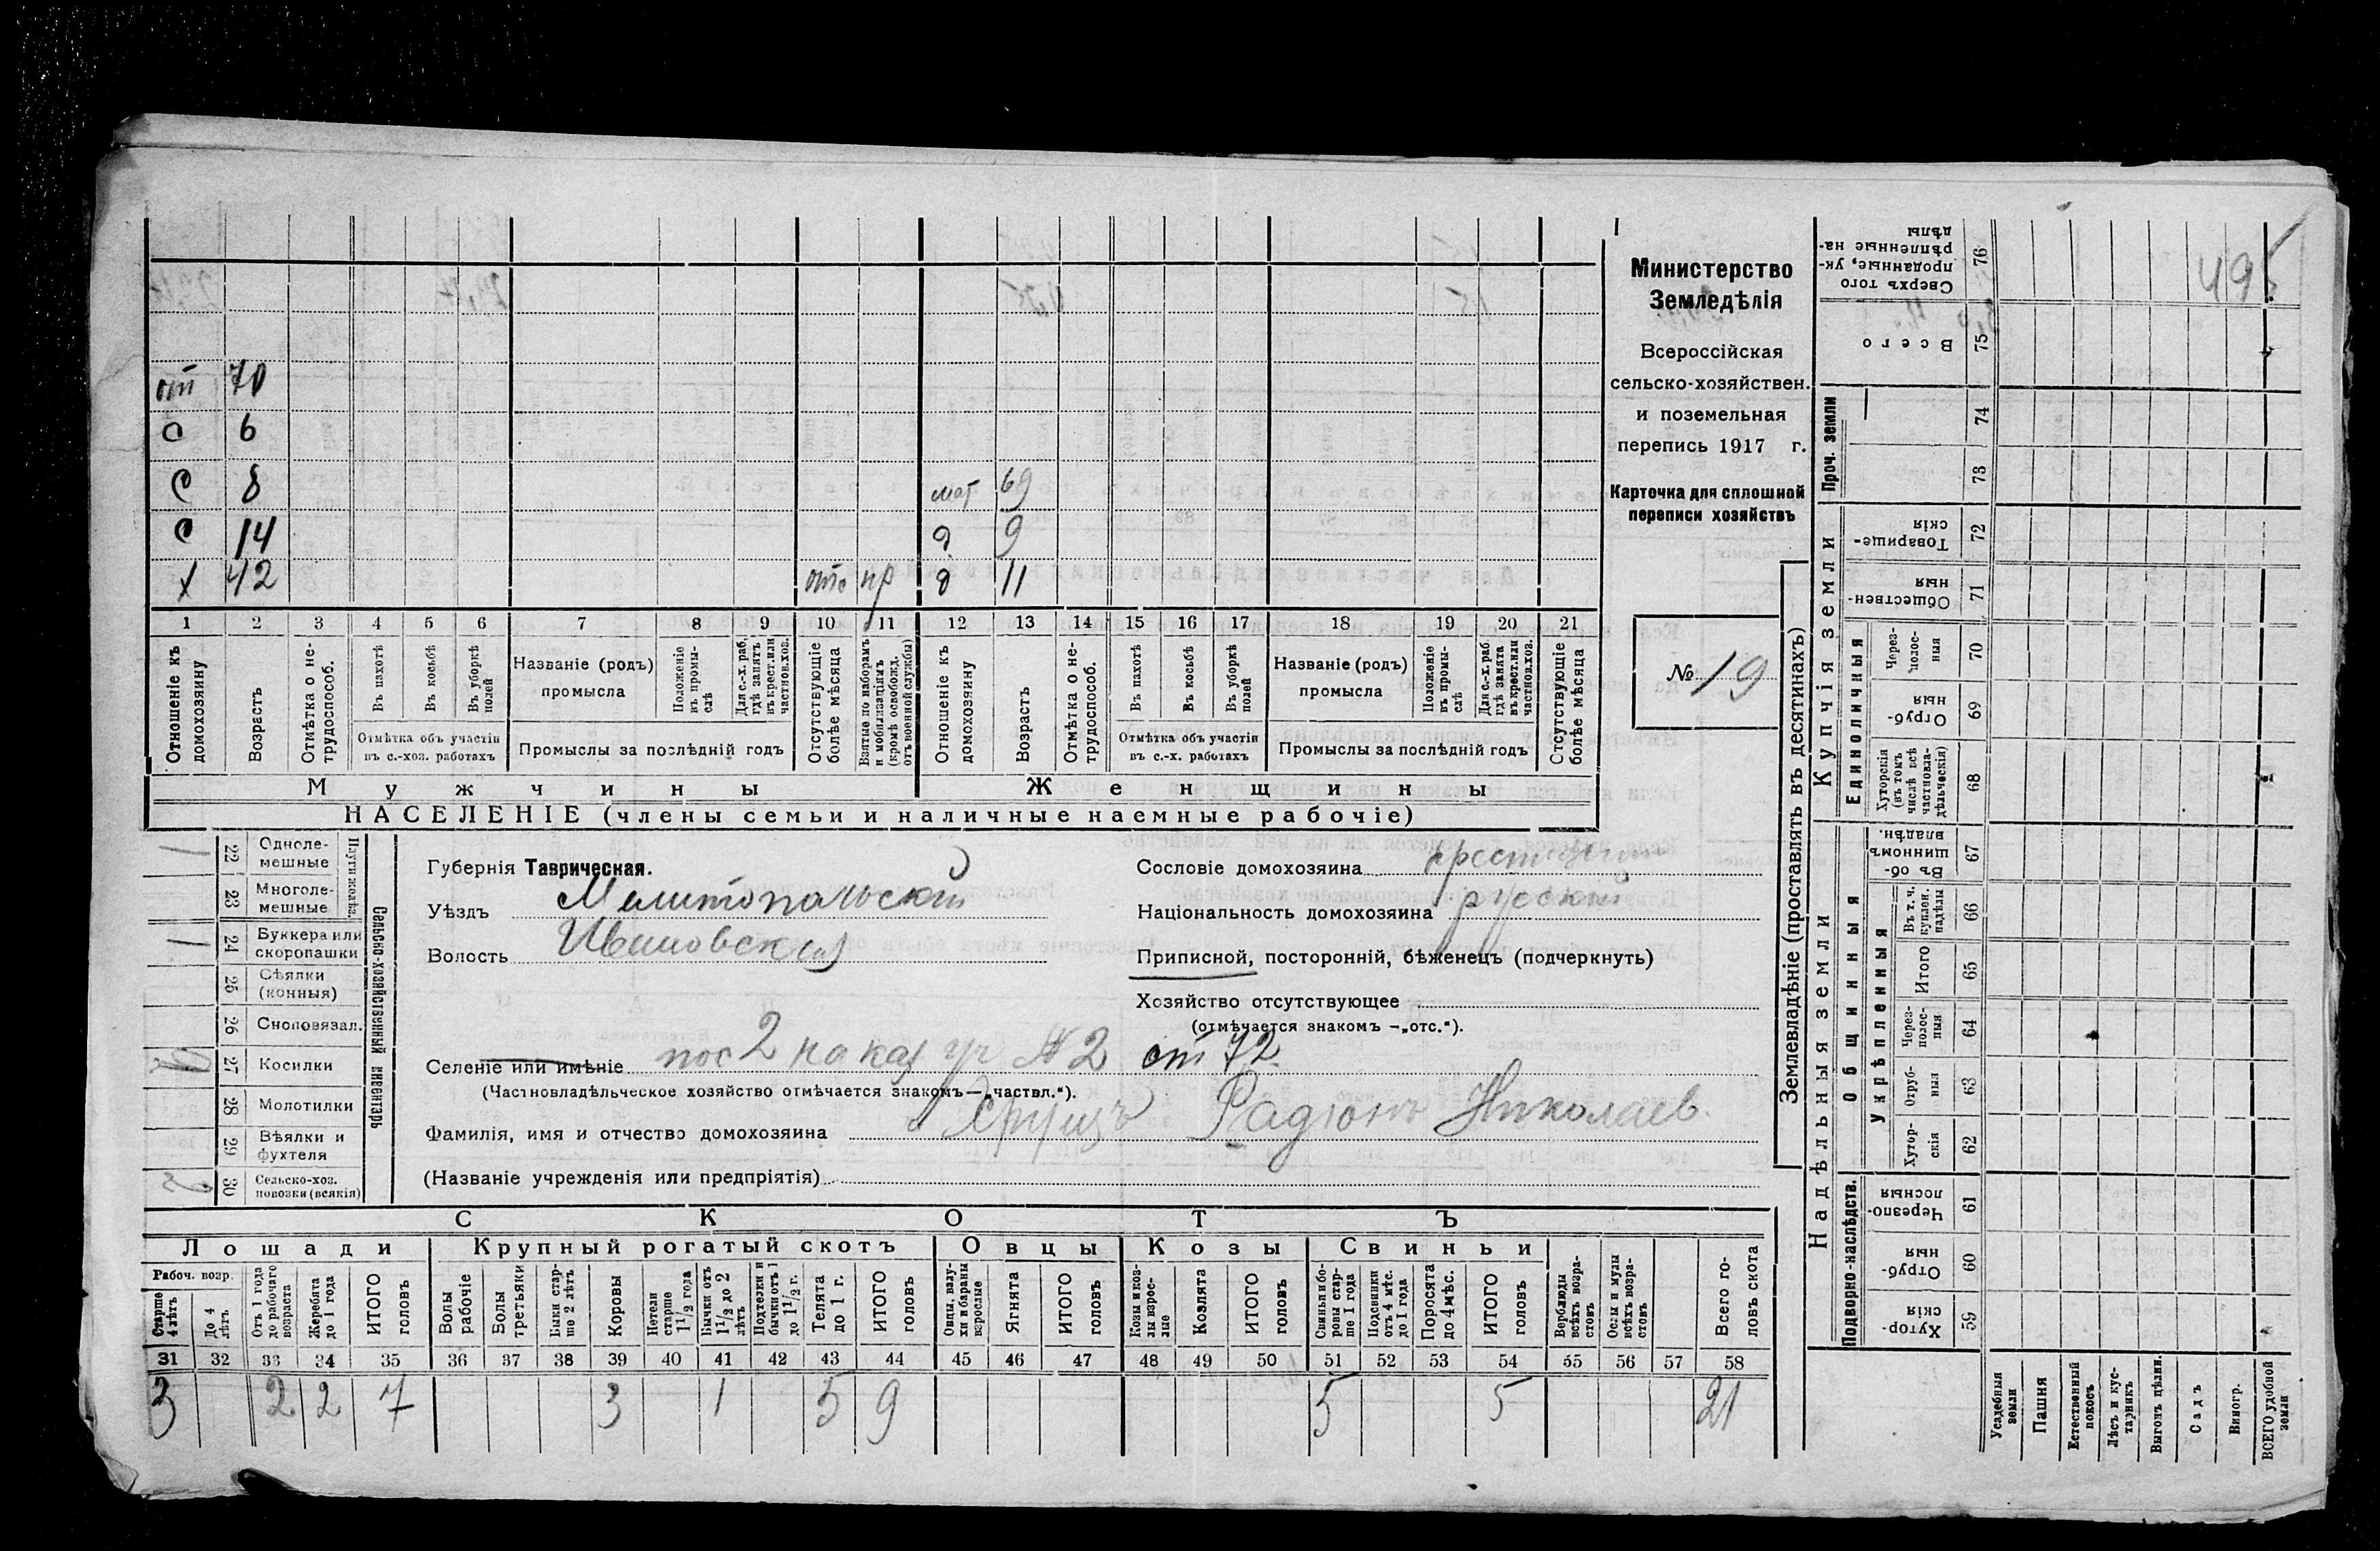 от 70
О 6
С 8 мат 69
С 14 д 9
х 42 отс пр д 11
1 2 3 4 5 6 7 8 9 10 11 12 13 14 15 16 17 18 19 20 21
Отношеніе къ домохозяину
Возрастъ
Отмѣтка о нетрудоспособ.
Въ пахотѣ
Въ косьбѣ
Въ уборкѣ полей
Отмѣтка объ участіи въ с.-хоз. работахъ
Названіе (родъ) промысла
Положеніе въ промы-слѣ
Для с.-х. раб. гдѣ занятъ въ крест. или частнов. хоз.
Промыслы за послѣдній годъ
Отсутствующіе болѣе мѣсяца
Взятые по наборамъ и мобилизаціямъ (кромѣ освобожд. отъ военной службы)
Отношеніе къ домохозяину
Возрастъ
Отмѣтка о не-трудоспособ.
Въ пахотѣ
Въ косьбѣ
Въ уборкѣ полей
Отмѣтка объ участіи въ с.-х. работахъ
Названіе (родъ) промысла
Положеніе въ промы-слѣ
Для с.-х. раб. гдѣ занята въ крест. или частнов. хоз.
Промыслы за послѣдній годъ
Отсутствующіе болѣе мѣсяца
Мужчины
Женщины
НАСЕЛЕНІЕ (члены семьи и наличные наемные рабочіе)
Министерство
Земледѣлія
Всероссійская
сельско-хозяйствен.
и поземельная
перепись 1917 г.
Карточка для сплошной
переписи хозяйствъ
№ 19
Сельско-хозяйственный инвентарь
1 22 Одноле-мешные
23 Многоле-мешные
1 24 Буккера или скоропашки
25 Сѣялки (конныя)
26 Сноповязал.
27 Косилки
28 Молотилки
29 Вѣялки и фухтеля
30 Сельско-хоз. повозки (всякія)
Губернія Таврическая.
Уѣздъ Мелитопольскій
Волость Ивановская
Селеніе или имѣніе пос 2 на каз уч № 2 ст 72
(Частновладѣльческое хозяйство отмѣчается знакомъ—„частвл.“).
Фамилія, имя и отчество домохозяина Радіонъ Николаев.
(Названіе учрежденія или предпріятія)
Сословіе домохозяина
Національность домохозяина русскій
Приписной, посторонній, бѣженецъ (подчеркнуть)
Хозяйство отсутствующее
(отмѣчается знакомъ —„отс.“).
СКОТЪ
Лошади Крупный рогатый скотъ Овцы Козы Свиньи
Рабоч. возр.
Старше 4 лѣтъ
До 4 лѣтъ
Отъ 1 года до рабочаго возраста
Жеребята до 1 года
ИТОГО головъ
Волы рабочіе
Волы третьяки
Быки стар-ше 2 лѣтъ
Коровы
Нетели старше 1 1/2 года
Бычки отъ 1 1/2 до 2 лѣтъ
Подтелки и бычки отъ 1 до 1 1/2 г.
Телята до 1 г.
ИТОГО головъ
Овцы, валу-хи и бараны взрослые
Ягнята
ИТОГО головъ
Козы и коз-лы взрос-лые
Козлята
ИТОГО головъ
Свиньи и бо-ровы стар-ше 1 года
Подсвинки отъ 4 мѣс. до 1 года
Поросята до 4 мѣс.
ИТОГО головъ
Верблюды всѣхъ возра-стовъ
Ослы и мулы всѣхъ возра-стовъ
Всего го-ловъ скота
31 32 33 34 35 36 37 38 39 40 41 42 43 44 45 46 47 48 49 50 51 52 53 54 55 56 57 58
3 2 2 7 3 1 5 9 5 5 21
Землевладѣніе (проставлять въ десятинахъ)
Надѣльныя земли
Купчія земли
Проч. земли
Подворно-наслѣдств.
Общинныя
Укрѣпленныя
Единоличныя
Сверхъ того проданные, ук-рѣпленные на-дѣлы 76
Всего 75
74
73
Товарище-скія 72
Обществен-ныя 71
Через-полос-ныя 70
Отруб-ныя 69
Хуторскія (въ томъ числѣ всѣ частновла-дѣльческія) 68
Въ об-щинномъ владѣн. 67
Въ т. ч. куплен. надѣлы 66
Итого 65
Через-полос-ныя 64
Отруб-ныя 63
Хутор-скія 62
Черезпо-лосныя 61
Отруб-ныя 60
Хутор-скія 59
Усадебныя земли
Пашня
Естественный покосъ
Лѣсъ и кус-тарникъ
Выгонъ цѣлин.
Садъ
Виногр.
ВСЕГО удобной земли
495